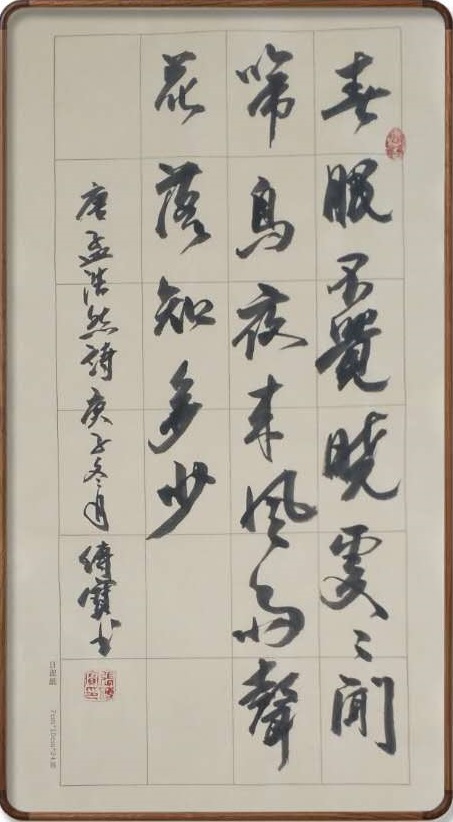 春眠不覺曉處〻聞
啼鳥夜来風雨聲
花落知多少
唐孟浩然詩庚子冬月寶书